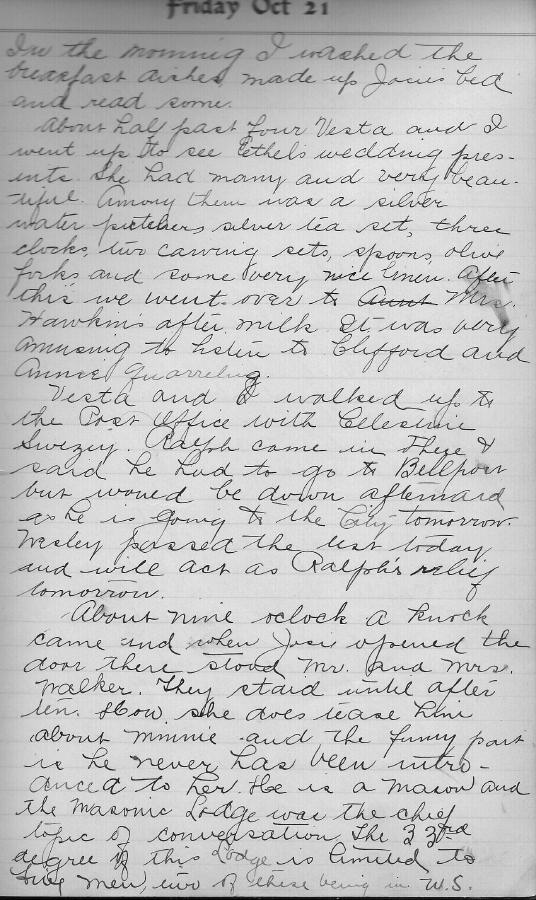 Friday Oct 21
In the morning I washed the
breakfast dishes, made up Josie's bed
and read some.
About half past four Vesta and I
went up to see Ethel's wedding pres-
ents. She had many and very beau-
tiful. Among them was a silver
water pitchers silver tea set, three
clocks, two carving sets, spoons, olive
forks and some very nice linen. After
this we went over to Aunt Mrs.
Hawkins after milk. It was very
amusing to listen to Clifford and
Annie quarreling.
Vesta and I walked up to
the Post Office with Celestine
Swezey. Ralph came in there &
said he had to go to Bellport
but would be down afterward
as he is going to the City tomorrow.
Wesley passed the test today
and will act as Ralph's relief
tomorrow.
About nine oclock a knock
came and when Josie opened the
door there stood Mr. and Mrs.
Walker. They staid until after
ten. How she does tease him
about Minnie and the funny part
is he never has been intro-
duced to her. He is a Mason and
the Masonic Lodge was the chief
topic of conversation. The 33rd
degree of this Lodge is limited to
men, two of these being in U.S.